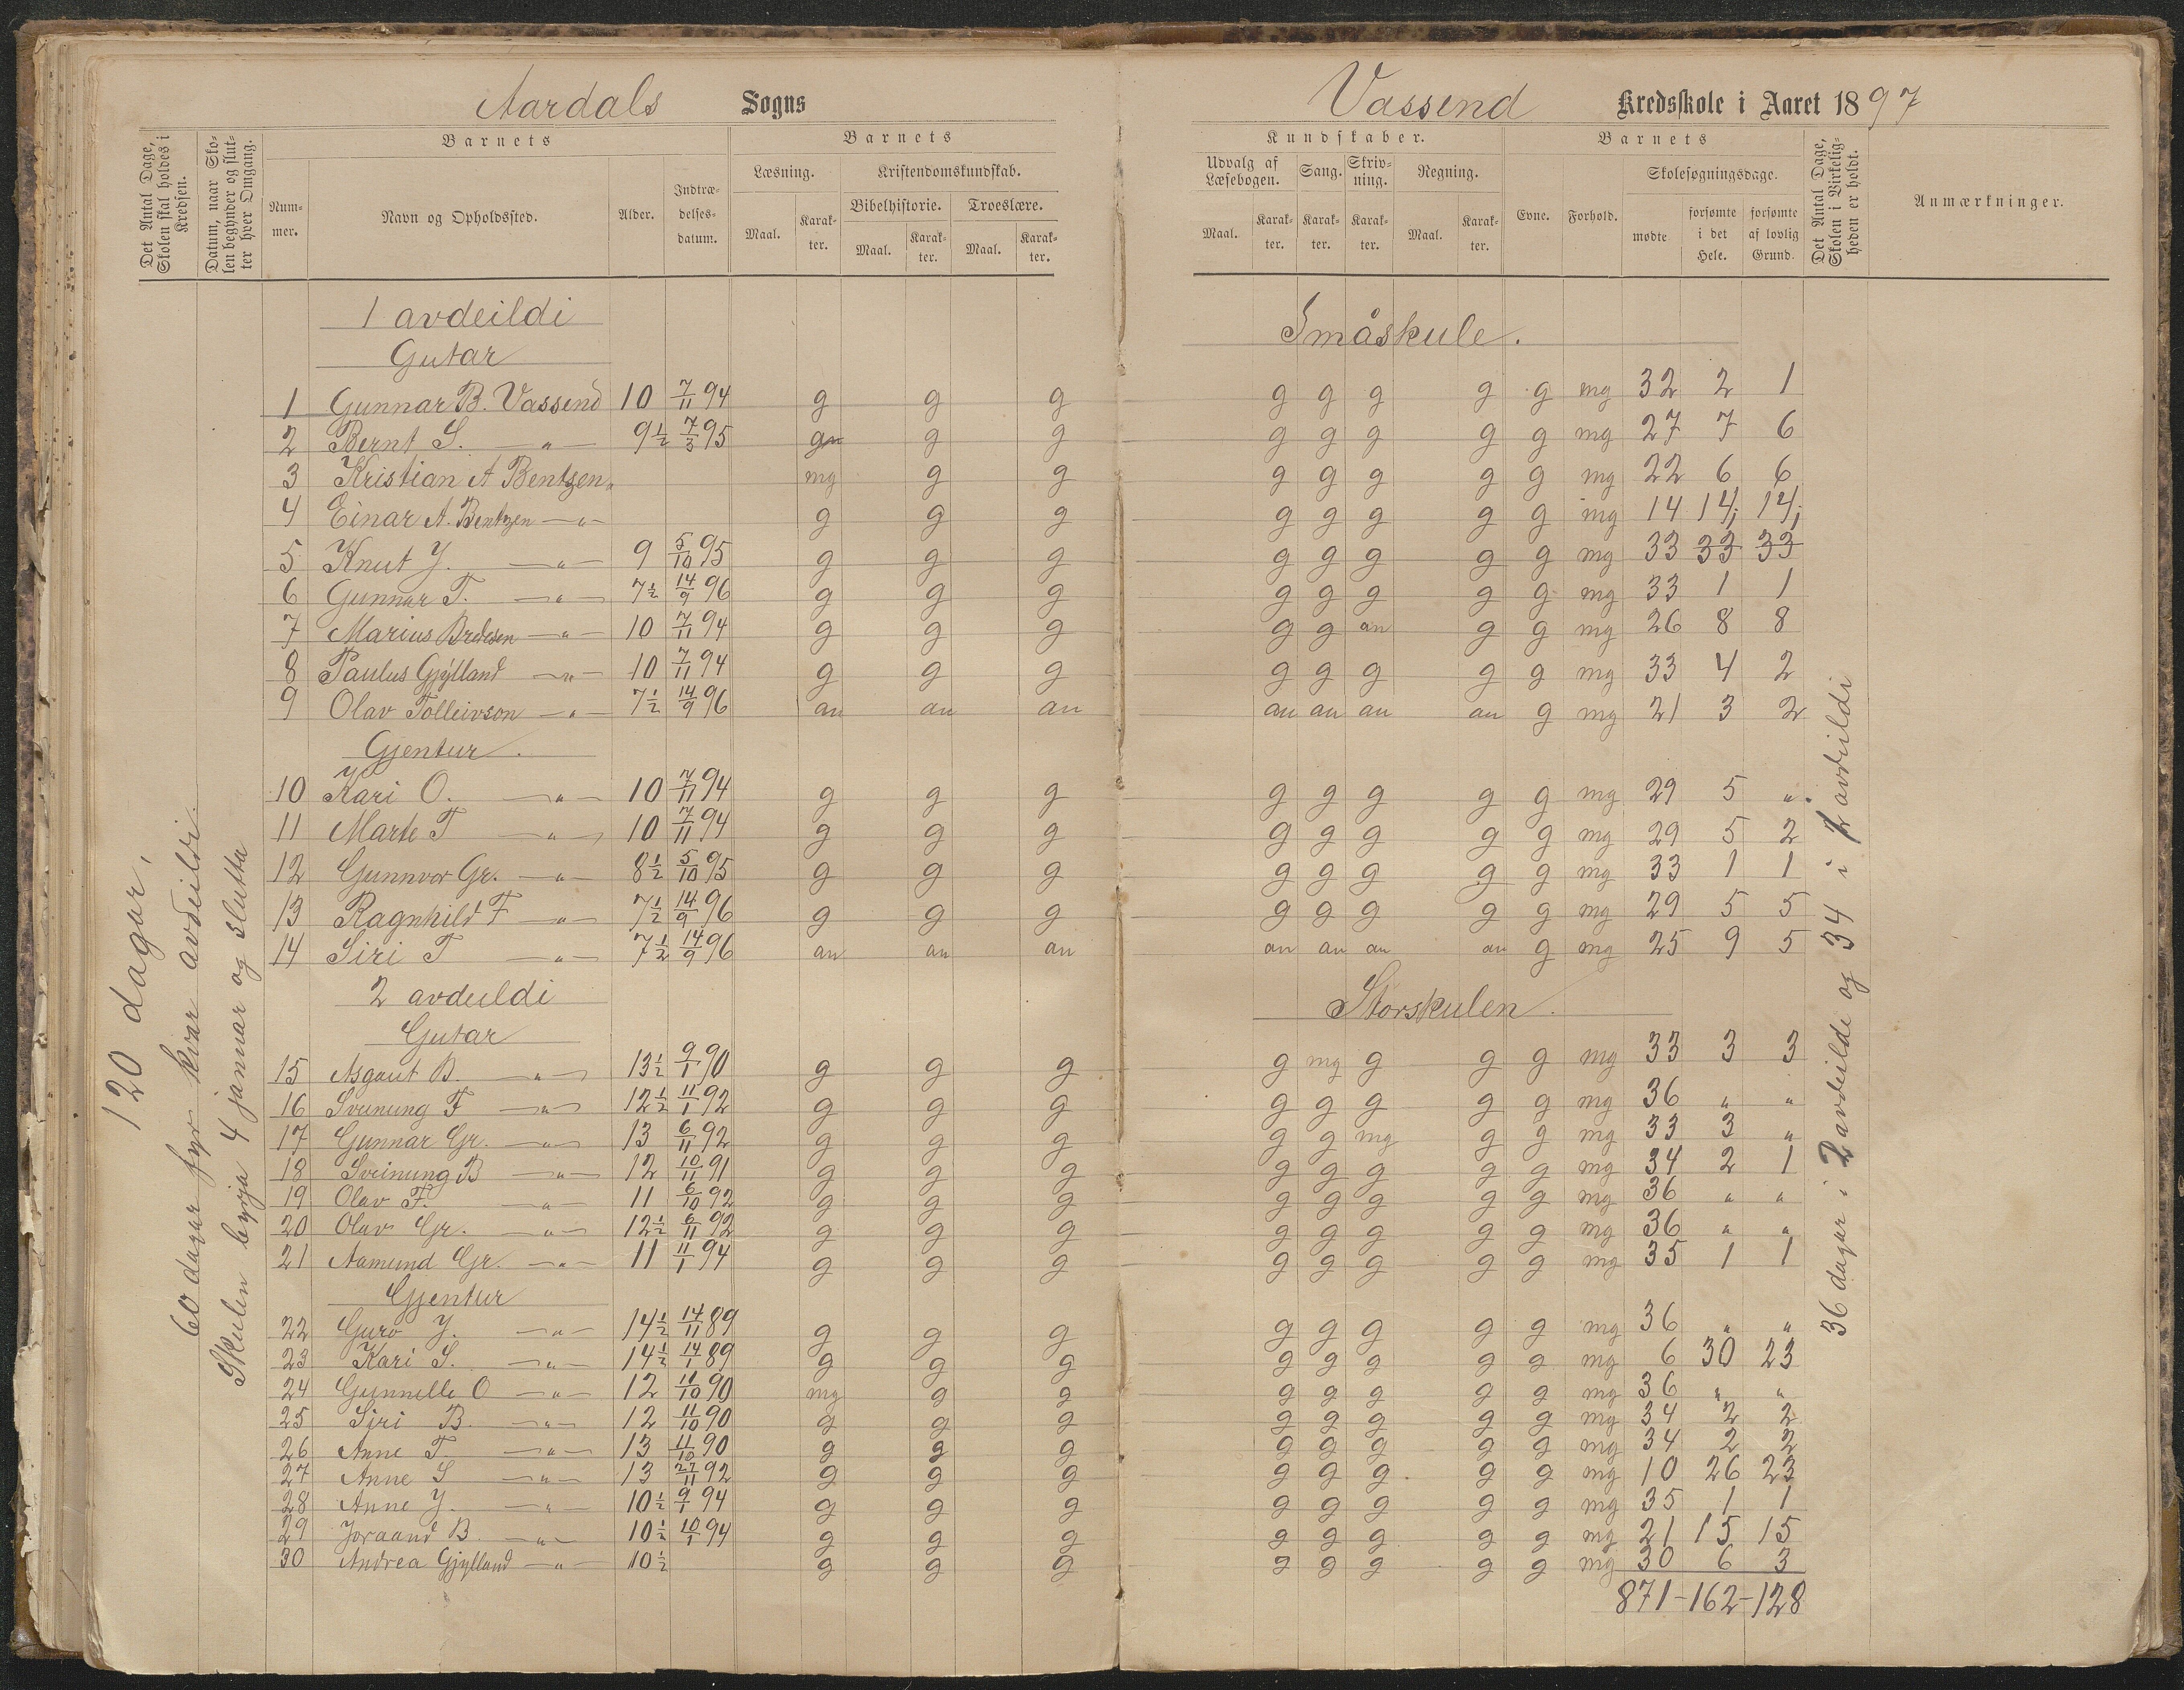 Aardals Sogns
Vassend Kredsskole i Aaret 1897
Det Antal Dage, Skolen skal holdes i Kredsen.
Datum, naar Skolen begynder og slutter hver Omgang.
Nummer.
Barnets
Navn og Opholdssted.
Alder.
Indtrædelsesdatum.
Barnets
Læsning.
Maal.
Karakter.
Kristendomskundskab.
Bibelhistorie.
Maal.
Karakter.
Troeslære.
Maal.
Karakter.
Kundskaber.
Udvalg af Læsebogen.
Maal.
Karakter.
Sang.
Karakter.
Skrivning.
Karakter.
Regning.
Maal.
Karakter.
Barnets
Evne.
Forhold.
Skolesøgningsdage.
mødte
forsømte i det Hele.
forsømte af lovlig Grund.
Det Antal Dage, Skolen i Virkeligheden er holdt.
Anmærkninger.
120 dagar,
60 dagar fyr kvar avdeildi.
Skulen byrja 4 januar og slutta
1 avdeildi Småskule.
Gutar
1 Gunnar B. Vassend 10 7/11 94 g g g g g g g g mg 32 2 1
2 Bernt S. —"— 9½ 7/3 95 g g g g g g g mg 27 7 6
3 Kristian A Bentzen " mg g g g g g g g mg 22 6 6
4 Einar A. Bentzen —"— g g g g g g g g mg 14 14; 14;
5 Knut Y. —"— 9 5/10 95 g g g g g g g g mg 33 33 33
6 Gunnar T. —"— 7½ 14/9 96 g g g g g g g g mg 33 1 1
7 Marius Bredesen —"— 10 7/11 94 g g g g g an g g mg 26 8 8
8 Paulus Gjylland —"— 10 7/11 94 g g g g g g g g mg 33 4 2
9 Olav Tolleivson —"— 7½ 14/9 96 an an an an an an an g mg 21 3 2
Gjentur.
10 Kari O. —"— 10 7/11 94 g g g g g g g g mg 29 5 "
11 Marte T —"— 10 7/11 94 g g g g g g g g mg 29 5 2
12 Gunnvor Gr. —"— 8½ 5/10 95 g g g g g g g g mg 33 1 1
13 Ragnhild F —"— 7½ 14/9 96 g g g g g g g g mg 29 5 5
14 Siri T —"— 7½ 14/9 96 an an an an an an an g mg 25 9 5
2 avdeildi Storskulen.
Gutar
15 Asgaut B. —"— 13½ 9/1 90 g g g g mg g g g mg 33 3 3
16 Sveinung F —"— 12½ 11/1 92 g g g g g g g g mg 36 " "
17 Gunnar Gr. —"— 13 6/11 92 g g g g g mg g g mg 33 3 "
18 Sveinung B —"— 12 10/11 91 g g g g g g g g mg 34 2 1
19 Olav F. —"— 11 6/10 92 g g g g g g g g mg 36 " "
20 Olav Gr. —"— 12½ 6/11 92 g g g g g g g g mg 36 " "
21 Aamund Gr. —"— 11 11/1 94 g g g g g g g g mg 35 1 1
Gjentur
22 Guro Y. —"— 14½ 14/11 89 g g g g g g g g mg 36 " "
23 Kari S. —"— 14½ 14/1 89 g g g g g g g g mg 6 30 23
24 Gunnelle O —"— 12 11/10 90 mg g g g g g g g mg 36 " "
25 Siri B. —"— 12 11/10 90 g g g g g g g g mg 34 2 2
26 Anne T —"— 13 11/10 90 g g g g g g g g mg 34 2 2
27 Anne S —"— 13 27/11 92 g g g g g g g g mg 10 26 23
28 Anne Y. —"— 10½ 9/1 94 g g g g g g g g mg 35 1 1
29 Joraand B —"— 10½ 10/1 94 g g g g g g g g mg 21 15 15
30 Andrea Gjylland —"— 10½ g g g g g g g g mg 30 6 3
871-162-128
36 dagar i 2 avdeildi og 34 i 1 avdeildi